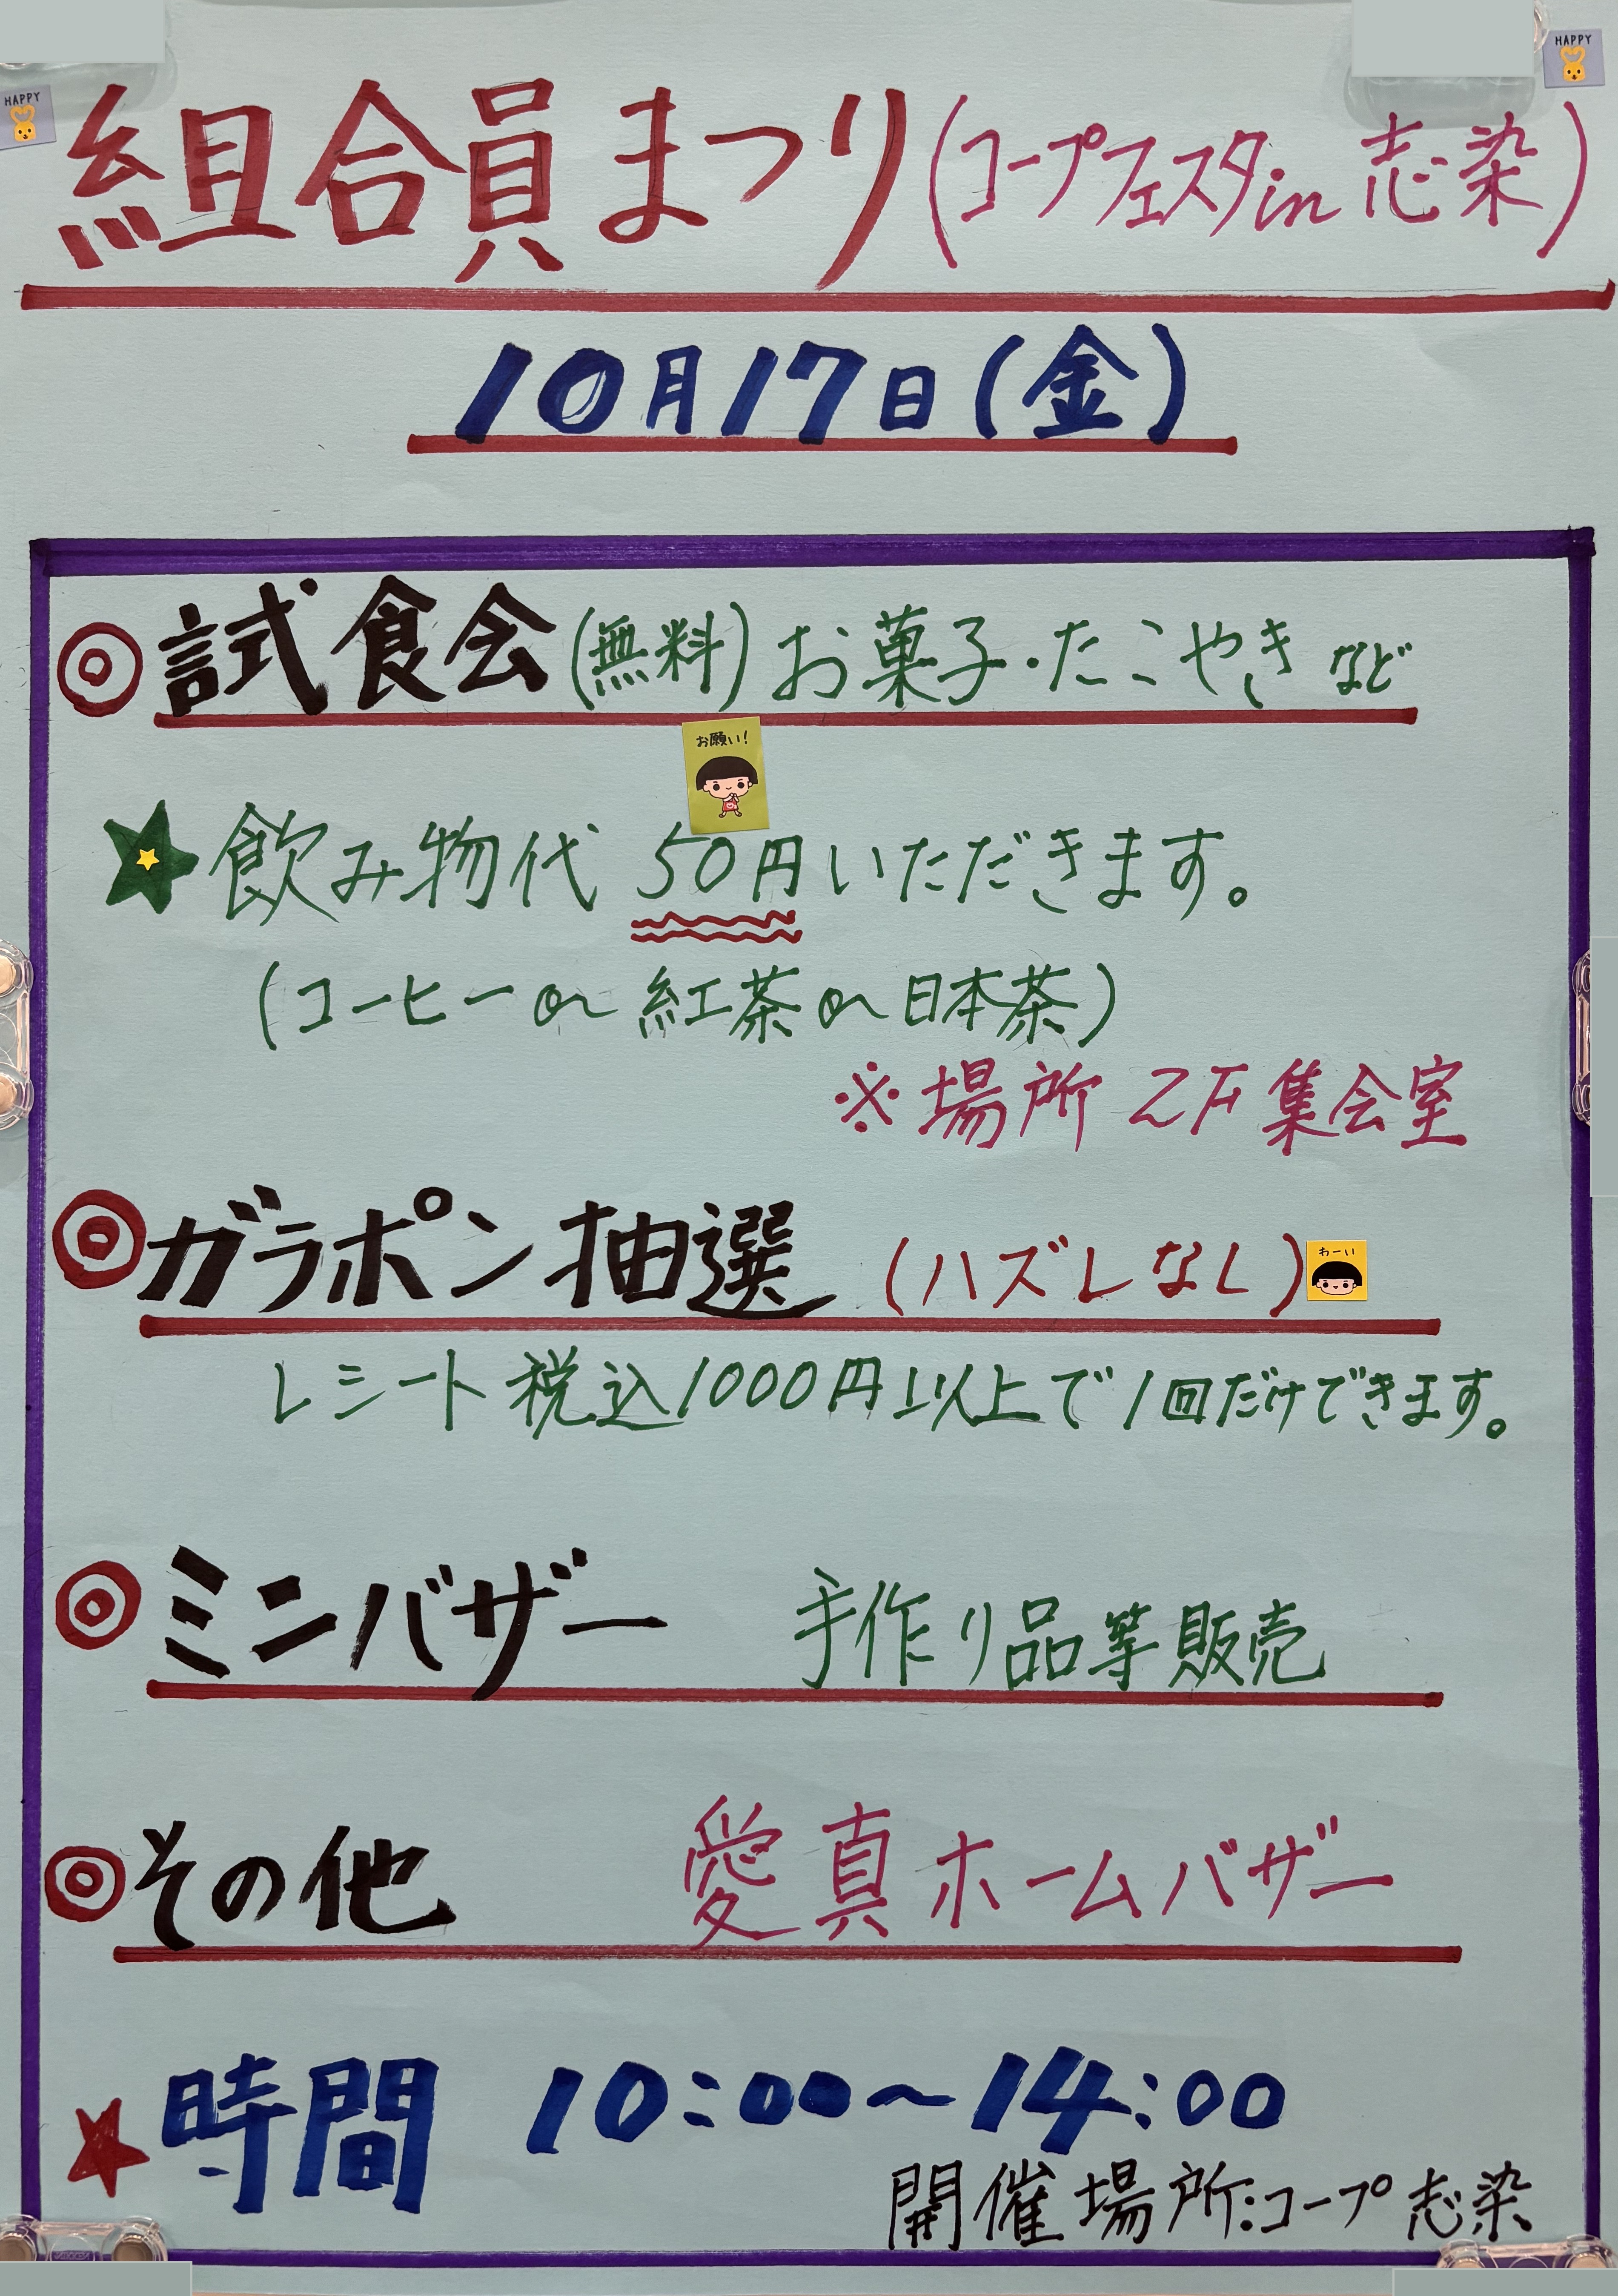 HAPPY
HAPPY
組合員まつり(コープフェスタin志染)
10月17日(金)
◎試食会(無料)お菓子・たこやきなど
お願い!
★飲み物代 50円いただきます。
(コーヒーor紅茶or日本茶)
※場所 2F集会室
◎ガラポン抽選 (ハズレなし)
わーい
レシート税込1000円以上で1回だけできます。
◎ミンバザー 手作り品等販売
◎その他 愛真ホームバザー
★時間 10:00~14:00
開催場所:コープ志染